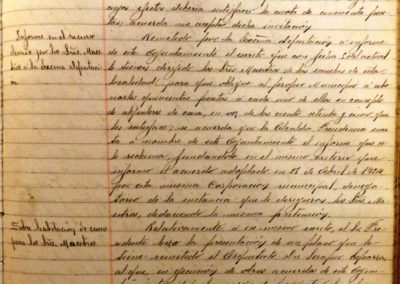 cuyos efectos debería satisfacer la cuota de cincuenta pese-
tas, acuerda no aceptar dicha invitación.
Informe en el recurso
elevado por los Sres. Maes-
tros a la Excma Diputación
Remitido por la Excma Diputación a informe
de este Ayuntamiento el escrito que con fecha
tiene dirigido los Sres Maestros de las escuelas de esta
localidad, para que obligue al propio Municipio a abo-
narles quinientas pesetas a cada uno de ellos en concepto
de alquileres de casa, en vez de las ciento ochenta y cinco que
les satisface, se acuerda que la Alcaldía Presidencia emita
a nombre de este Ayuntamiento el informe que se
le reclama fundándolo en el mismo criterio que
informó el acuerdo adoptado en 21 de Octubre de 1904
por esta misma Corporación municipal, denega-
torio de la instancia que le dirigieron los Sres Ma-
estros, deduciendo la misma pretensión.
Sobre habitación de casas
para los Sres Maestros
Relativamente a este mismo asunto, el Sr Pre-
sidente hizo la presentación de un plano que le
tiene remitido el Arquitecto Dn Serapio
al que, en ejecución de otros acuerdos de este Ayun-